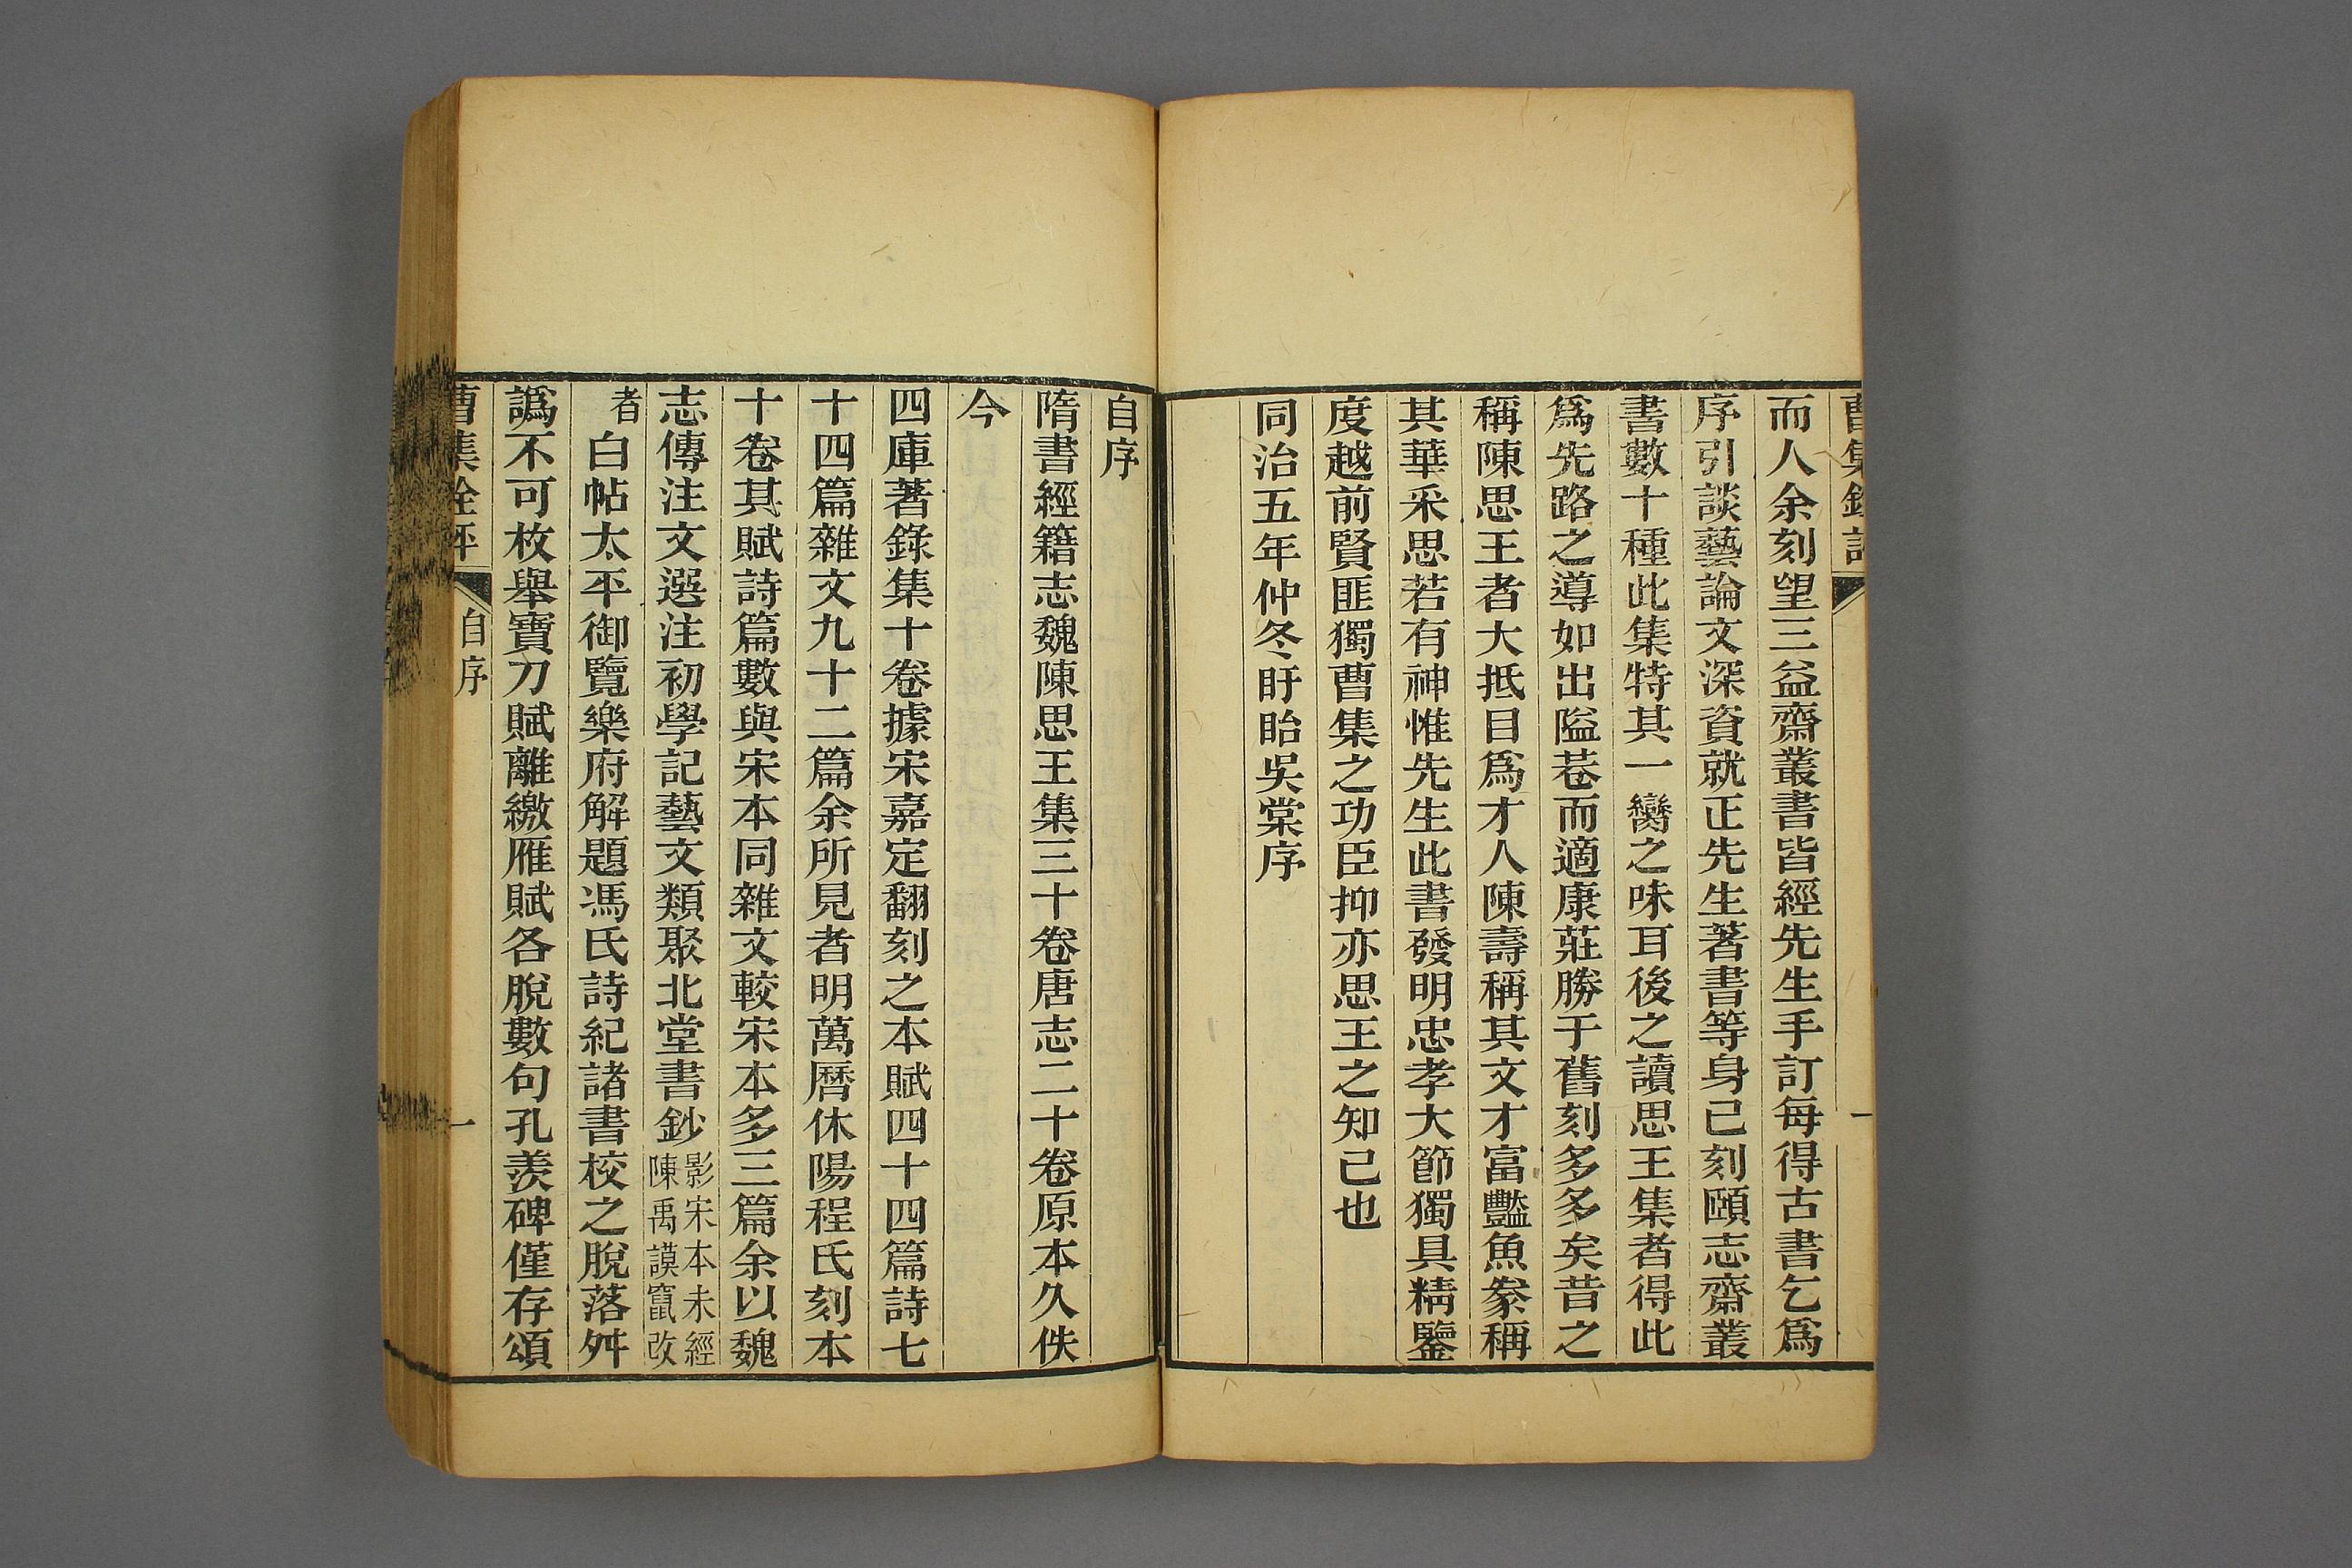 曹集銓評
一
而人余刻望三益齋叢書皆經先生手訂每得古書乞爲
序引談藝論文深資就正先生著書等身已刻頤志齋叢
書數十種此集特其一臠之味耳後之讀思王集者得此
爲先路之導如出隘巷而適康莊勝于舊刻多多矣昔之
稱陳思王者大抵目爲才人陳壽稱其文才富豔魚豢稱
其華采思若有神惟先生此書發明忠孝大節獨具精鑒
度越前賢匪獨曹集之功臣抑亦思王之知己也
同治五年仲冬盱眙吳棠序
自序
隋書經籍志魏陳思王集三十卷唐志二十卷原本久佚
今
四庫著錄集十卷據宋嘉定翻刻之本賦四十四篇詩七
十四篇雜文九十二篇余所見者明萬曆休陽程氏刻本
十卷其賦詩篇數與宋本同雜文較宋本多三篇余以魏
志傳注文選注初學記藝文類聚北堂書鈔影宋本未經陳禹謨竄改
者白帖太平御覽樂府解題馮氏詩紀諸書校之脫落舛
譌不可枚舉寶刀賦離繳雁賦各脫數句孔羨碑僅存頌
曹集銓評
自序
一